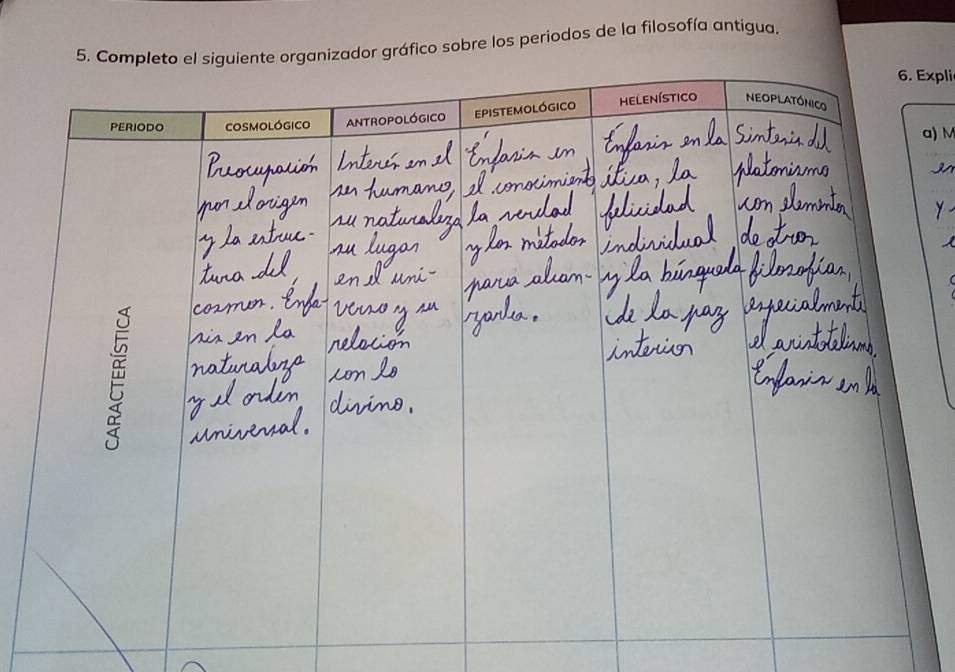 5. Completo el siguiente organizador gráfico sobre los periodos de la filosofía antigua.
PERIODO
COSMOLÓGICO
ANTROPOLÓGICO
EPISTEMOLÓGICO
HELENÍSTICO
NEOPLATÓNICO
CARACTERÍSTICA
Preocupación
por el origen
y la estruc-
tura del
cosmos. Énfa-
sis en la
naturaleza
y el orden
universal.
Interés en el
ser humano,
su naturaleza
su lugar
en el uni-
verso y su
relación
con lo
divino.
Énfasis en
el conocimiento
la verdad
y los métodos
para alcan-
zarlea.
Énfasis en la
ética, la
felicidad
individual
y la búsqueda
de la paz
interior
Síntesis del
platonismo
con elementos
de otras
filosofías,
especialmente
el aristotelismo.
Énfasis en la
6. Expli
a) M
en
y